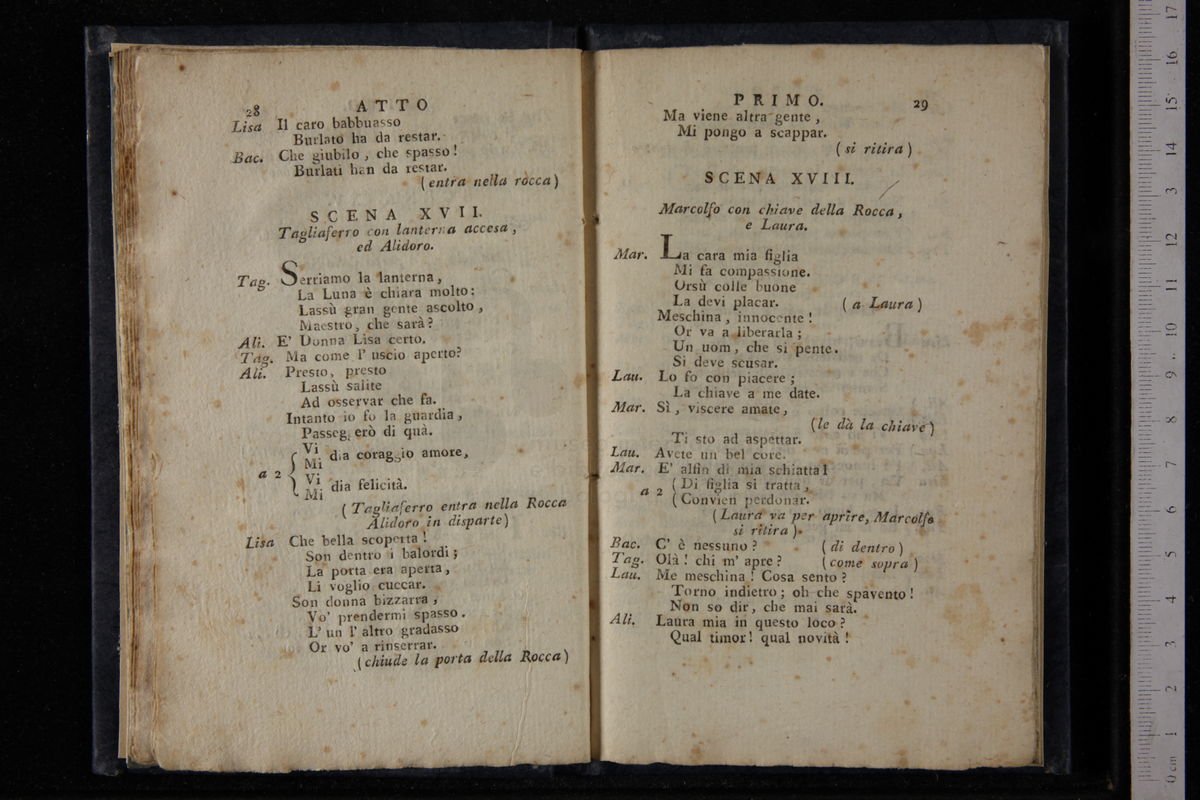 28 ATTO
Lisa Il caro babbuasso
Burlato ha da restar.
Bac. Che giubilo, che spasso!
Burlati han da restar.
(entra nella rocca)
SCENA XVII.
Tagliaferro con lanterna accesa,
ed Alidoro.
Tag. Serriamo la lanterna,
La Luna è chiara molto:
Lassù gran gente ascolto,
Maestro, che sarà?
Ali. E' Donna Lisa certo.
Tag. Ma come l' uscio aperto?
Ali. Presto, presto
Lassù salite
Ad osservar che fa.
Intanto io fo la guardia,
Passeggerò di quà.
a 2 { Vi
Mi dia coraggio amore,
Vi
Mi dia felicità.
(Tagliaferro entra nella Rocca
Alidoro in disparte)
Lisa Che bella scoperta!
Son dentro i balordi;
La porta era aperta,
Li voglio cuccar.
Son donna bizzarra,
Vo' prendermi spasso.
L' un l' altro gradasso
Or vo' a rinserrar.
(chiude la porta della Rocca)
PRIMO. 29
Ma viene altra gente,
Mi pongo a scappar.
(si ritira)
SCENA XVIII.
Marcolfo con chiave della Rocca,
e Laura.
Mar. La cara mia figlia
Mi fa compassione.
Orsù colle buone
La devi placar. (a Laura)
Meschina, innocente!
Or va a liberarla;
Un uom, che si pente.
Si deve scusar.
Lau. Lo fo con piacere;
La chiave a me date.
Mar. Sì, viscere amate,
(le dà la chiave)
Ti sto ad aspettar.
Lau. Avete un bel core.
Mar. E' alfin di mia schiatta!
a 2 (Di figlia si tratta,
(Convien perdonar.
(Laura va per aprire, Marcolfo
si ritira).
Bac. C' è nessuno? (di dentro)
Tag. Olà! chi m' apre? (come sopra)
Lau. Me meschina! Cosa sento?
Torno indietro; oh che spavento!
Non so dir, che mai sarà.
Ali. Laura mia in questo loco?
Qual timor! qual novità!
0 cm 1 2 3 4 5 6 7 8 9 10 11 12 13 14 15 16 17